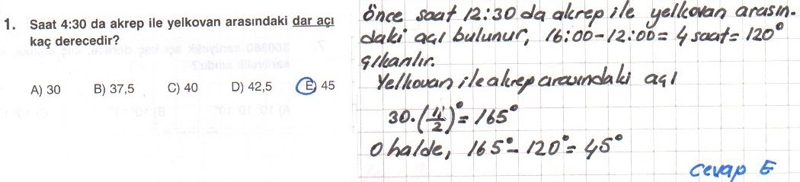 1. Saat 4:30 da akrep ile yelkovan arasındaki dar açı
kaç derecedir?
A) 30 B) 37,5 C) 40 D) 42,5 E) 45
Önce saat 12:30 da akrep ile yelkovan arasın-
daki açı bulunur, 16:00-12:00=4 saat=120°
çıkarılır.
Yelkovan ile akrep arasındaki açı
30.(11/2)°=165°
O halde, 165°-120°=45°
cevap E